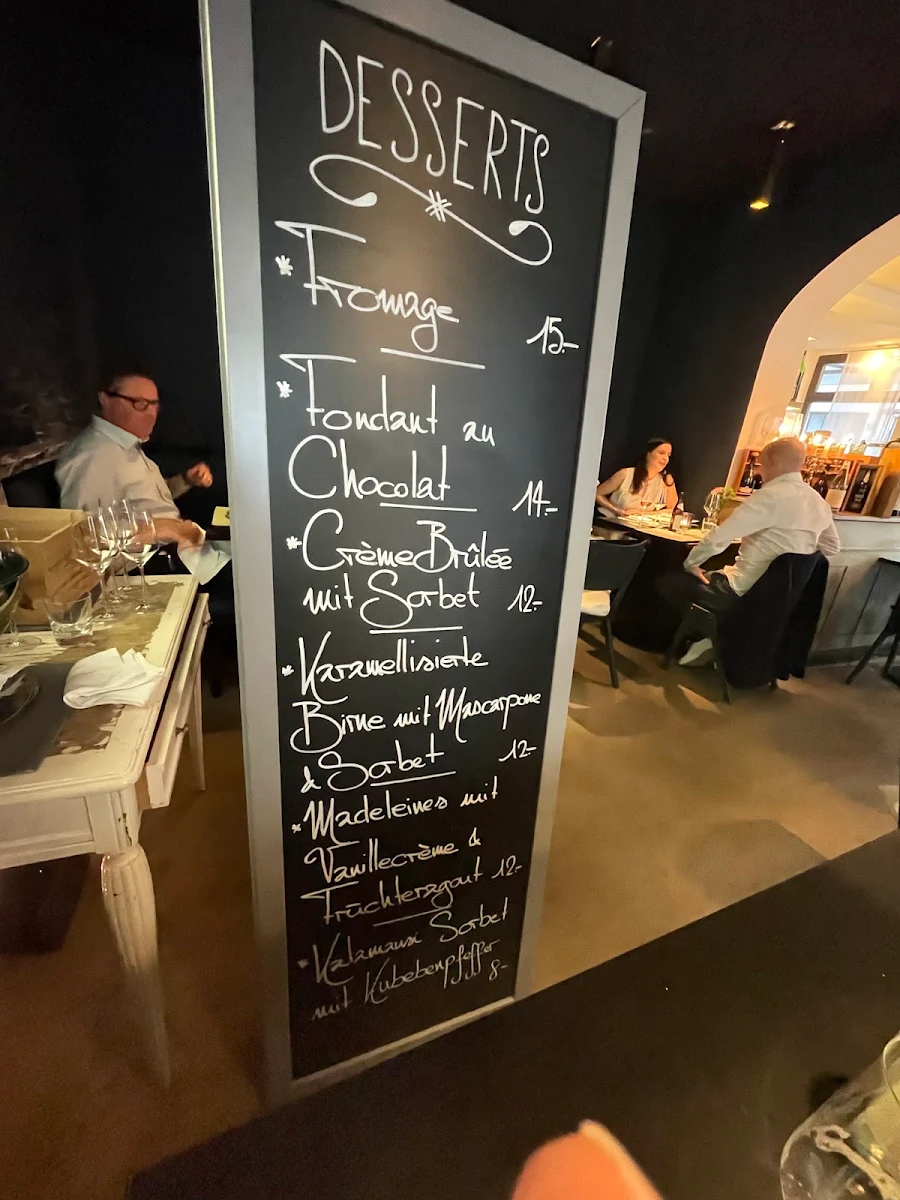 DESSERTS
* Fromage 15.-
* Fondant au
Chocolat 14.-
* Crème Brûlée
mit Sorbet 12.-
* Karamellisierte
Birne mit Mascarpone
& Sorbet 12.-
* Madeleines mit
Vanillecrème &
Früchteragout 12.-
* Kalamansi Sorbet
mit Kubebenpfeffer 8.-